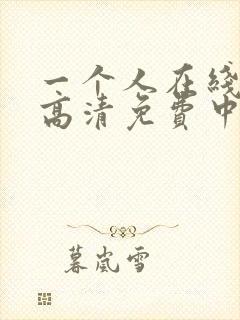 一个人在线
高清免費中
暮嵐雪